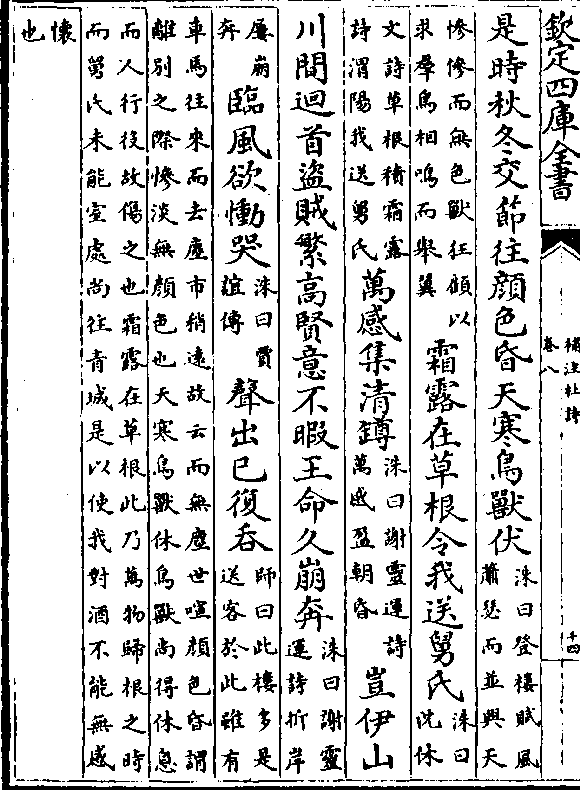 欽定四庫全書
補注杜詩
卷八
十四
是時秋冬交節往顏色昏天寒鳥獸伏洙曰登樓賦風
蕭瑟而並興天
慘慘而無色獸狂顧以
求羣鳥相鳴而舉翼霜露在草根令我送舅氏洙曰
沈休
文詩草根積霜露
詩渭陽我送舅氏萬感集清罇洙曰謝靈運詩
萬感盈朝昏豈伊山
川間迴首盜賊繁高賢意不暇王命久崩奔洙曰謝靈
運詩折岸
屢崩
奔臨風欲慟哭洙曰賈
誼傳聲出已復吞師曰此樓多是
送客於此雖有
車馬往來而去塵市稍遠故云而無塵世喧顏色昏謂
離別之際慘淡無顏色也天寒鳥獸休鳥獸尚得休息
而人行役故傷之也霜露在草根此乃萬物歸根之時
而舅氏未能室處尚往青城是以使我對酒不能無感
懷
也